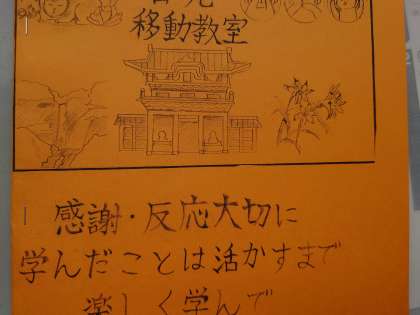 移動教室
感謝・反応大切に
学んだことは活かすまで
楽しく学んで